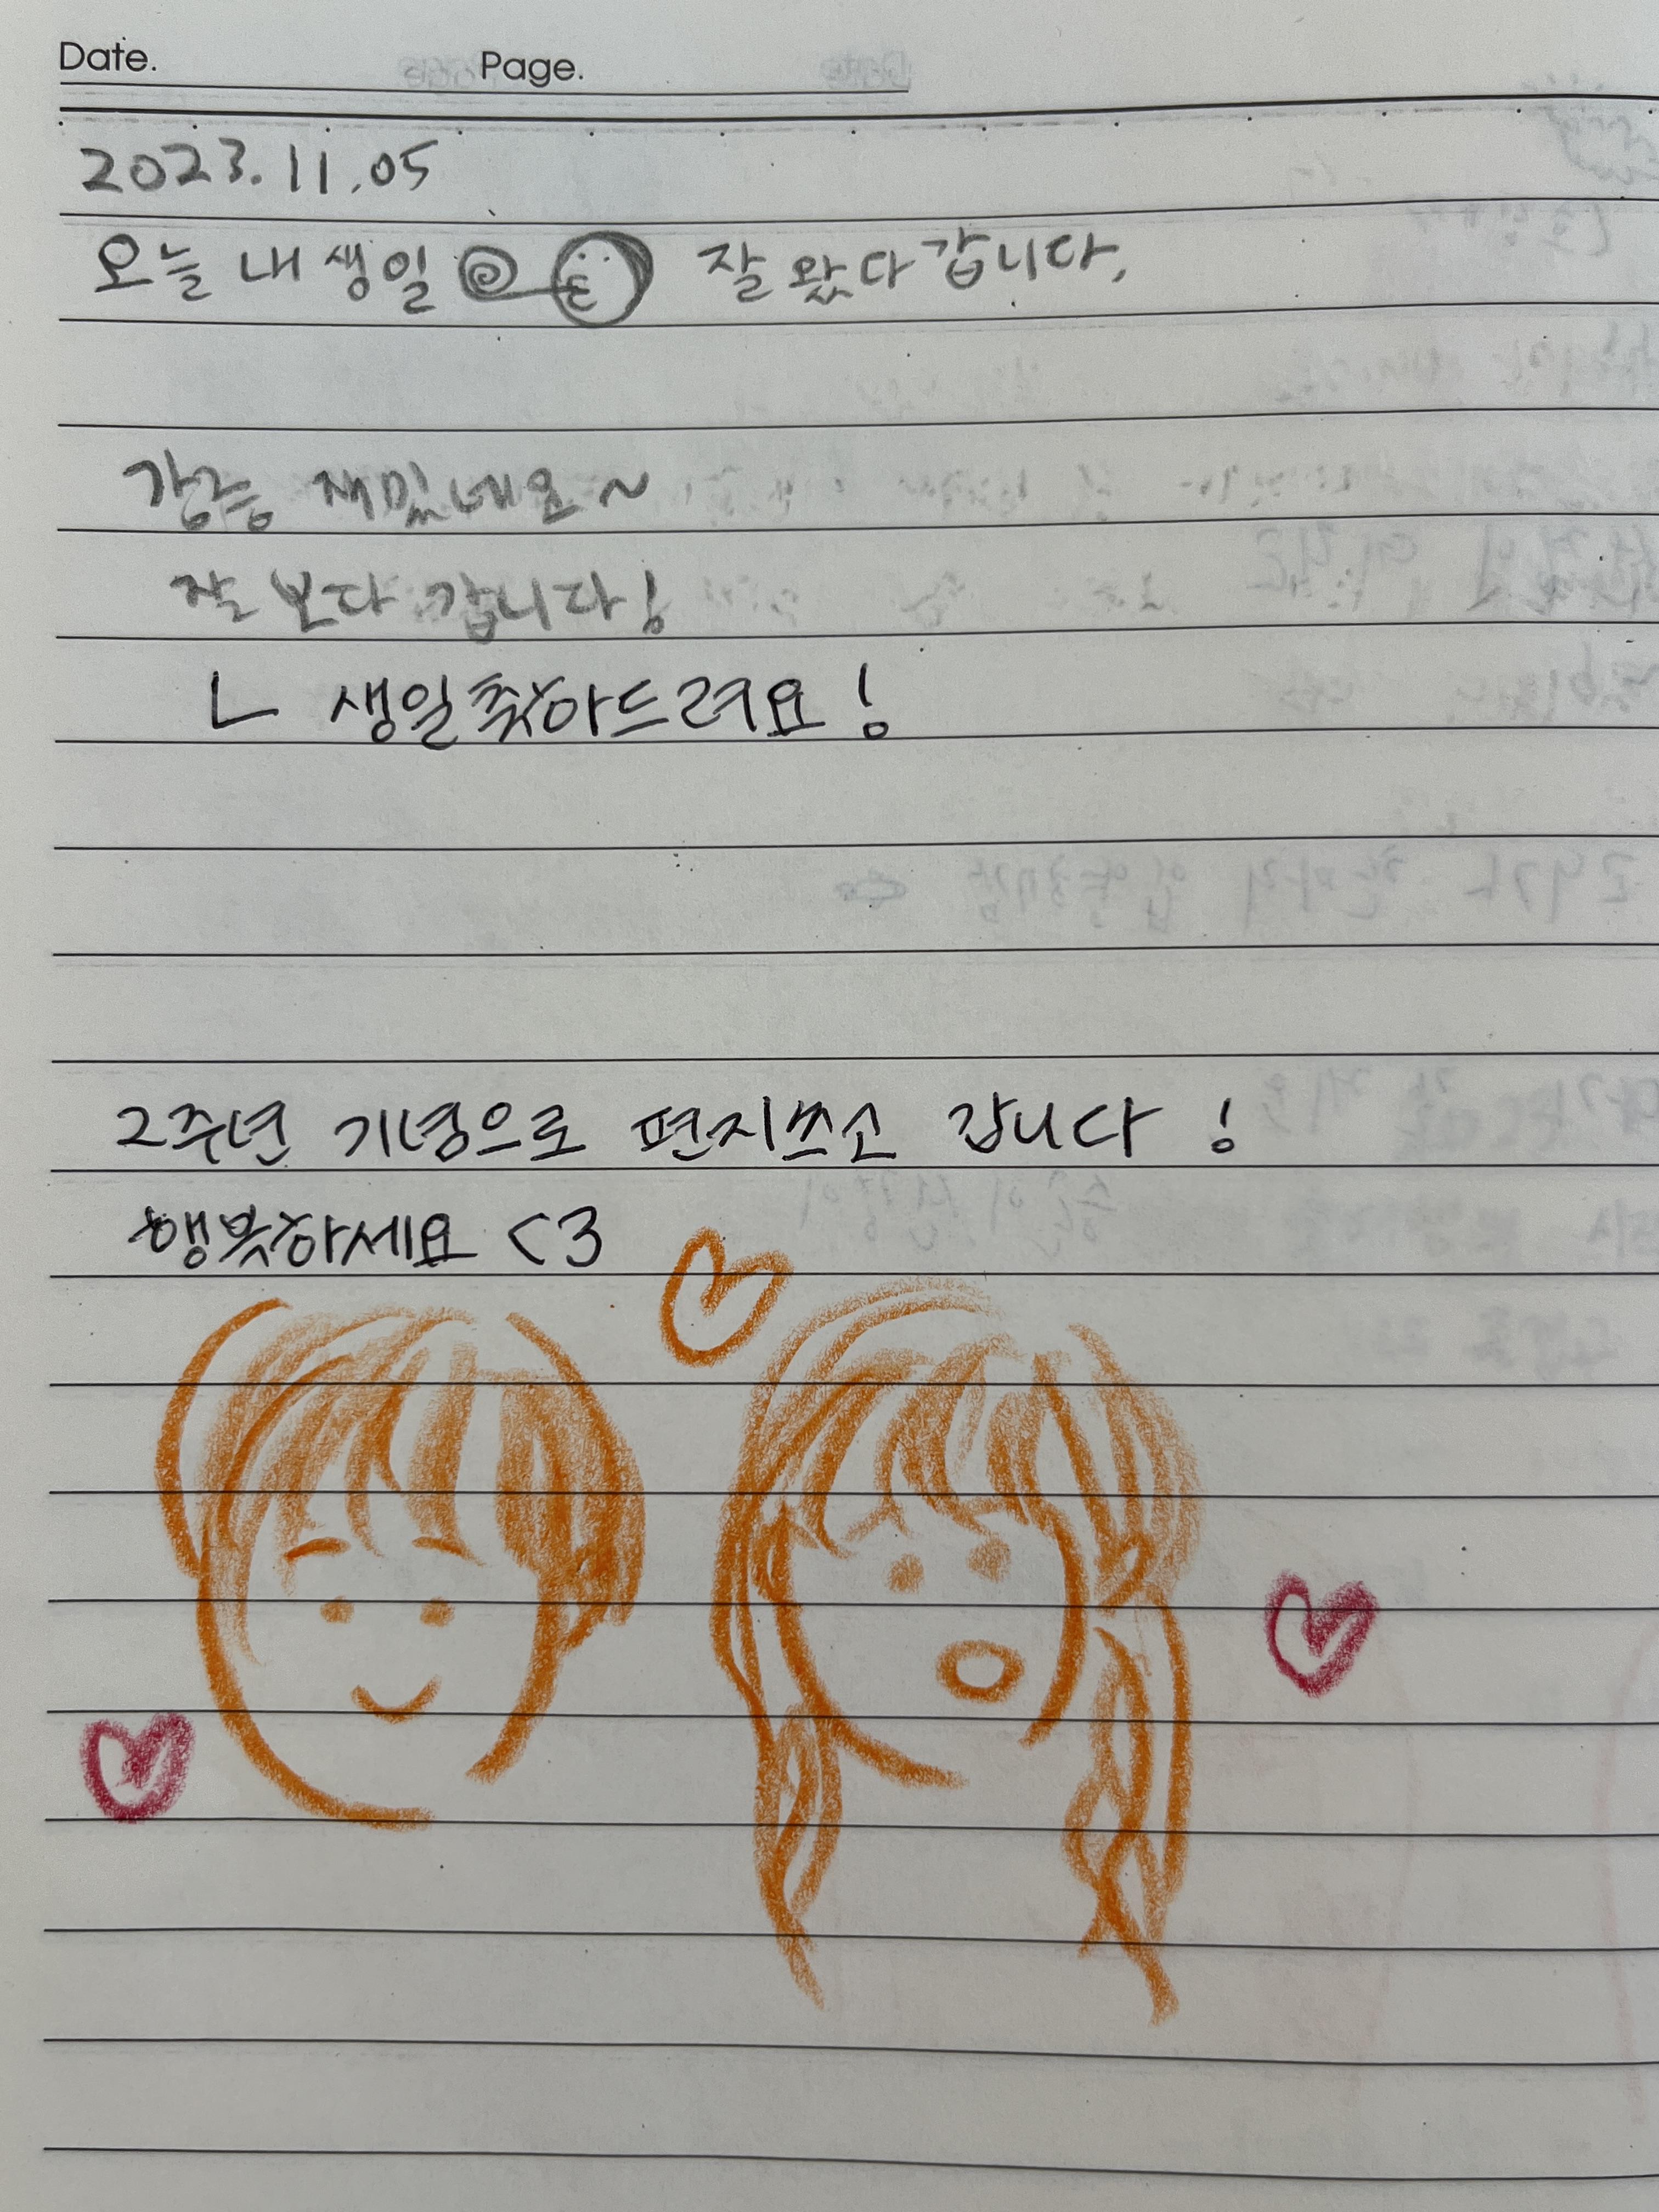 Date. Page.
2023.11.05
오늘 내 생일 잘 왔다 갑니다.
강릉 재밌네요~
잘 보다 갑니다!
ㄴ 생일축하드려요!
2주년 기념으로 편지쓰고 갑니다!
행복하세요 <3